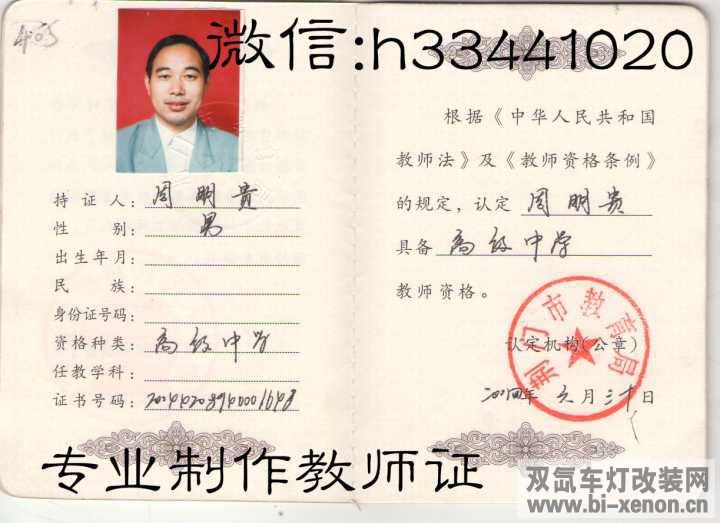 微信:h33441020
持 证 人: 周明贵
性 别: 男
出生年月:
民 族:
身份证号码:
资格种类: 高级中学
任教学科:
证书号码:
根据《中华人民共和国
教师法》及《教师资格条例》
的规定, 认定 周明贵
具备 高级中学
教师资格。
荆门市教育局
认定机构(公章)
二00四年 六月 三十日
专业制作教师证
双氙车灯改装网
www.bi-xenon.cn